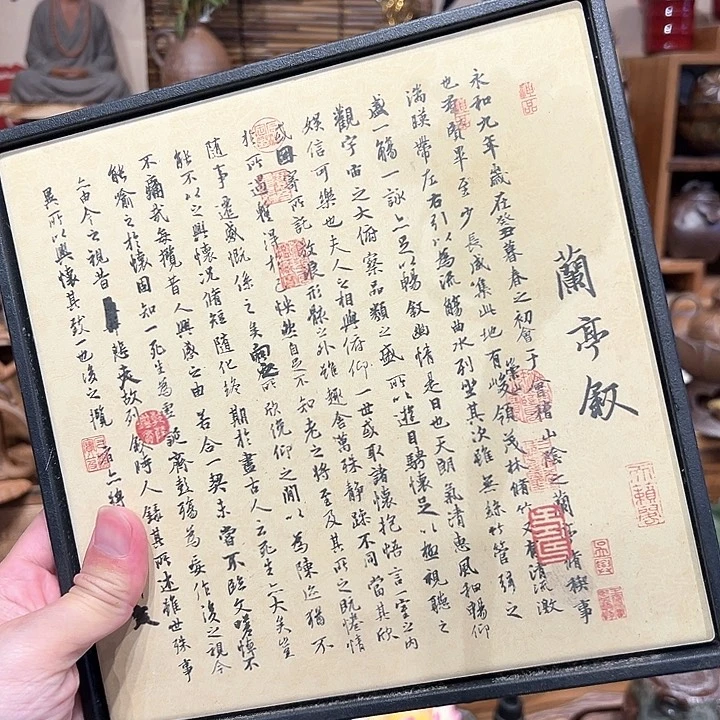 蘭亭敘
永和九年歲在癸丑暮春之初會于會稽山陰之蘭亭脩稧事
也羣賢畢至少長咸集此地有崇山峻領茂林脩竹又有清流激
湍暎帶左右引以為流觴曲水列坐其次雖無絲竹管弦之
盛一觴一詠亦足以暢敘幽情是日也天朗氣清惠風和暢仰
觀宇宙之大俯察品類之盛所以遊目騁懷足以極視聽之
娛信可樂也夫人之相與俯仰一世或取諸懷抱悟言一室之內
或因寄所託放浪形骸之外雖趣舍萬殊靜躁不同當其欣
於所遇蹔得於己怏然自足不知老之將至及其所之既惓情
隨事遷感慨係之矣向之所欣俛仰之間以為陳迹猶不
能不以之興懷況脩短隨化終期於盡古人云死生亦大矣豈
不痛哉每攬昔人興感之由若合一契未嘗不臨文嗟悼不
能喻之於懷固知一死生為虛誕齊彭殤為妄作後之視今
亦由今之視昔悲夫故列敘時人錄其所述雖世殊事
異所以興懷其致一也後之攬者亦將文